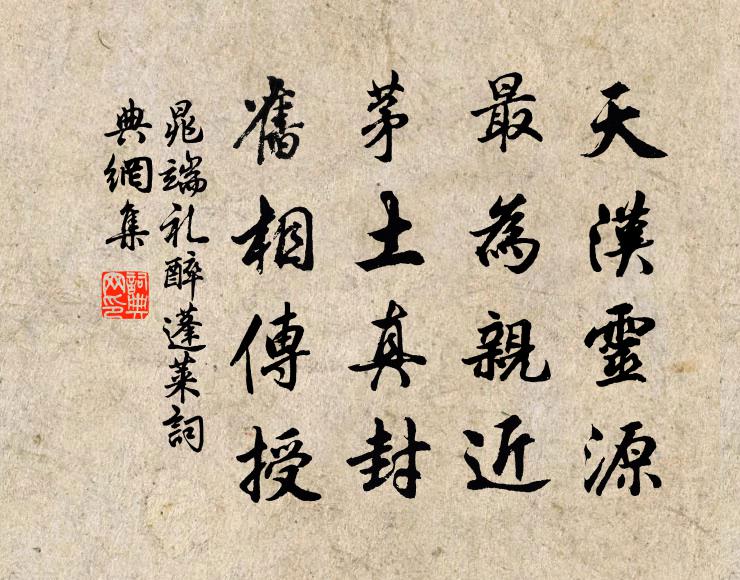 天漢靈源
最為親近
茅土真封
舊相傳授
晁端礼醉蓬萊詞
典網集
詞典
网印